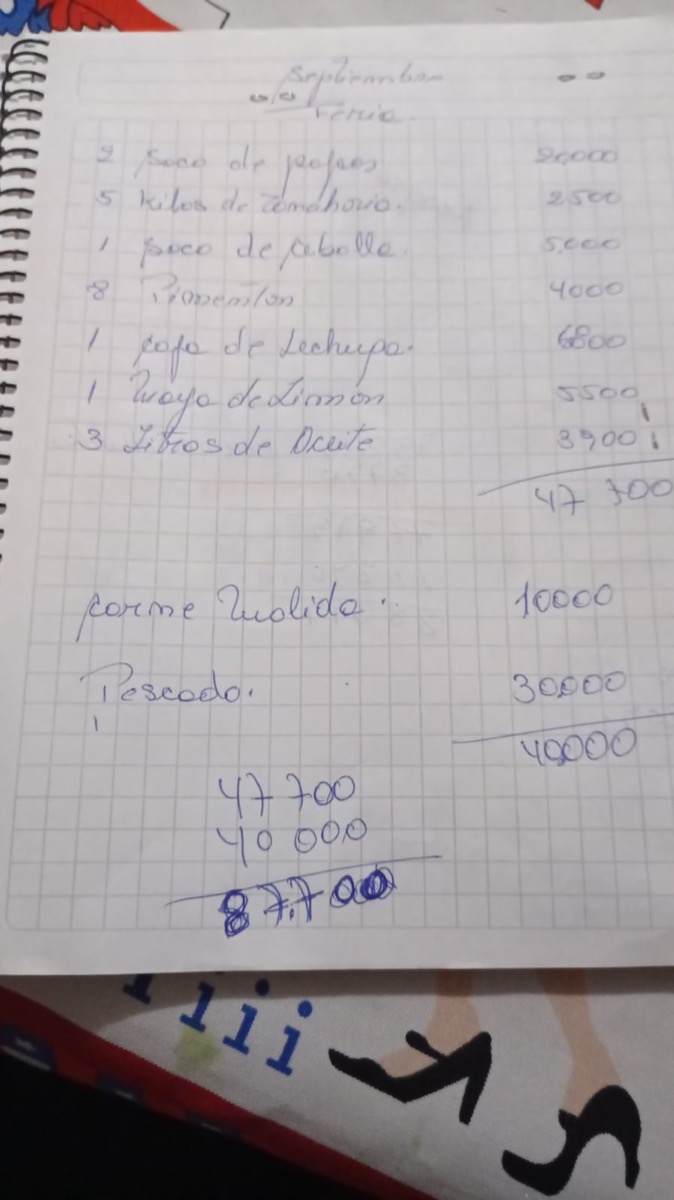 Septiembre
Feria
2 Saco de papas 20,000
5 Kilos de Zanahoria. 2500
1 Saco de Cebolla. 5.000
8 Pimenton 4000
1 Caja de Lechuga. 6800
1 Maya de Limón 5500
3 Litros de Aceite 3900
47 700
Carne Molida. 10000
Pescado. 30.000
40000
47 700
40 000
87.700
iii